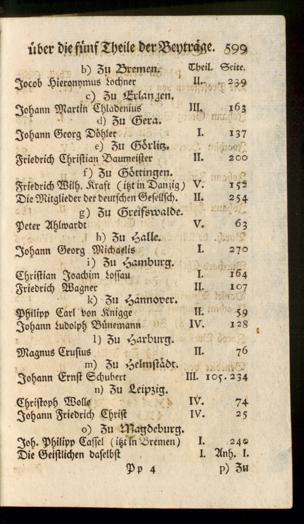 über die fünf Theile der Beyträge. 599
b) Zu Bremen. Theil. Seite.
Jocob Hieronymus Lochner II. 239
c) Zu Erlangen.
Johann Martin Chladenius III. 163
d) Zu Gera.
Johann Georg Döhler I. 137
e) Zu Görlitz.
Friedrich Christian Baumeister II. 200
f) Zu Göttingen.
Friedrich Wilh. Kraft (itzt in Danzig) V. 152
Die Mitglieder der deutschen Gesellsch. II. 254
g) Zu Greifswalde.
Peter Ahlwardt V. 63
h) Zu Halle.
Johann Georg Michaelis I. 270
i) Zu Hamburg.
Christian Joachim Lossau I. 164
Friedrich Wagner II. 107
k) Zu Hannover.
Philipp Carl von Knigge II. 59
Johann Ludolph Bünemann IV. 128
l) Zu Harburg.
Magnus Crusius II. 76
m) Zu Helmstädt.
Johann Ernst Schubert III. 105. 234
n) Zu Leipzig.
Christoph Wolle IV. 74
Johann Friedrich Christ IV. 25
o) Zu Magdeburg.
Joh. Philipp Cassel (itzt in Bremen) I. 240
Die Geistlichen daselbst I. Anh. I.
P p 4 p) Zu